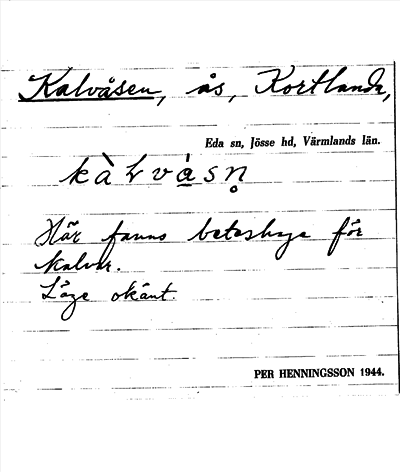 Kalvåsen, ås, Kortlanda,
Eda sn, Jösse hd, Värmlands län.
kàlvåsn̥
Här fanns beteshage för
kalvar.
Läge okänt.
PER HENNINGSSON 1944.